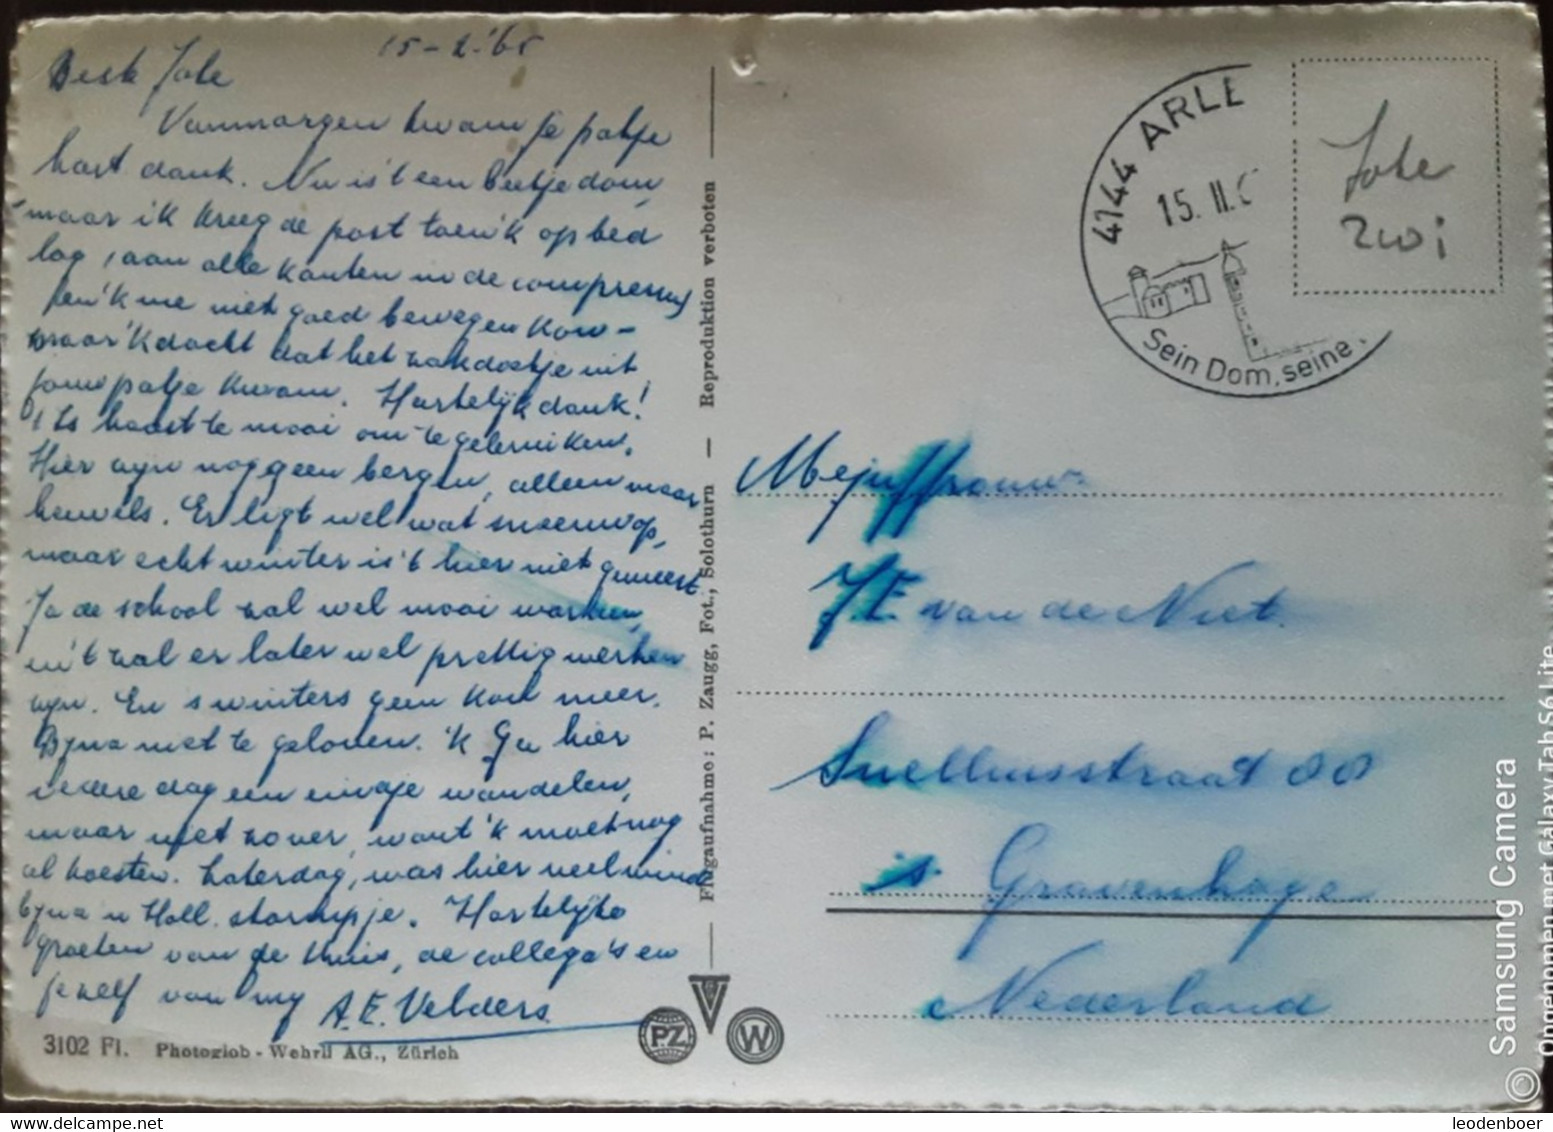 15-2-'65
Beste Joke
Vanmorgen kwam je pakje
hart. dank. Nu is 't een beetje dom,
maar ik kreeg de post toen 'k op bed
lag, aan alle kanten in de compressen
toen 'k me niet goed bewegen kon -
waar 'k dacht dat het zakdoekje uit
jouw pakje kwam. Hartelijk dank!
't Is haast te mooi om te gebruiken.
Hier zyn nog geen bergen, alleen maar
heuvels. Er ligt wel wat sneeuw op,
maar echt winter is 't hier niet geweest.
Ja de school zal wel mooi worden,
en 't zal er later wel prettig werken
zyn. En 's winters geen kou meer.
Byna niet te geloven. 'k Ga hier
iedere dag een eindje wandelen,
maar niet zo ver, want 'k moet nog
al hoesten. Zaterdag, was hier veel wind
byna 'n Holl. stormpje. Hartelijke
groeten van de thuis, de collega's en
jezelf van my A.E. Velders
3102 Fl. Photoglob - Wehrli AG., Zürich
Flugaufnahme: P. Zaugg, Fot., Solothurn — Reproduktion verboten
P.Z.
W
4144 ARLE
15. II. 6
Sein Dom, seine
Joke
Zwi
Mejuffrouw
J.E. van de Niet.
Snelliusstraat 80
's Gravenhage
Nederland
© Samsung Camera
Opgenomen met Galaxy Tab S6 Lite
leodenboer